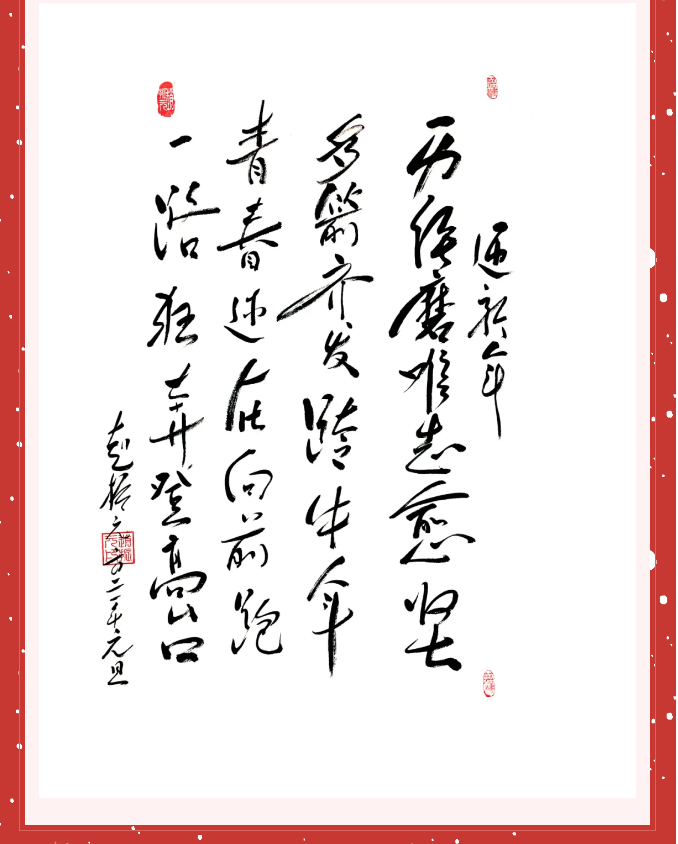 迎新年
历经磨难志愈坚
多箭齐发跨牛年
青春还在向前跑
一路狂奔登高口
赵振元 二〇二一年元旦